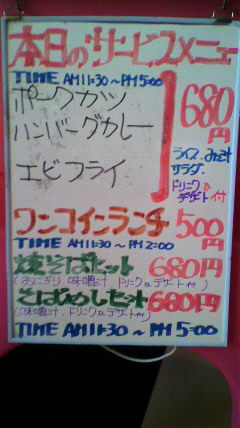 本日のサービスメニュー
TIME AM11:30〜PM5:00
ポークカツ
ハンバーグカレー
エビフライ
680円
ライス、みそ汁
サラダ、
ドリンク&
デザート付
ワンコインランチ 500円
TIME AM11:30〜PM2:00
焼そばセット 680円
(おにぎり、味噌汁、ドリンク&デザート付)
そばめしセット 680円
(味噌汁、ドリンク&デザート付)
TIME AM11:30〜PM5:00